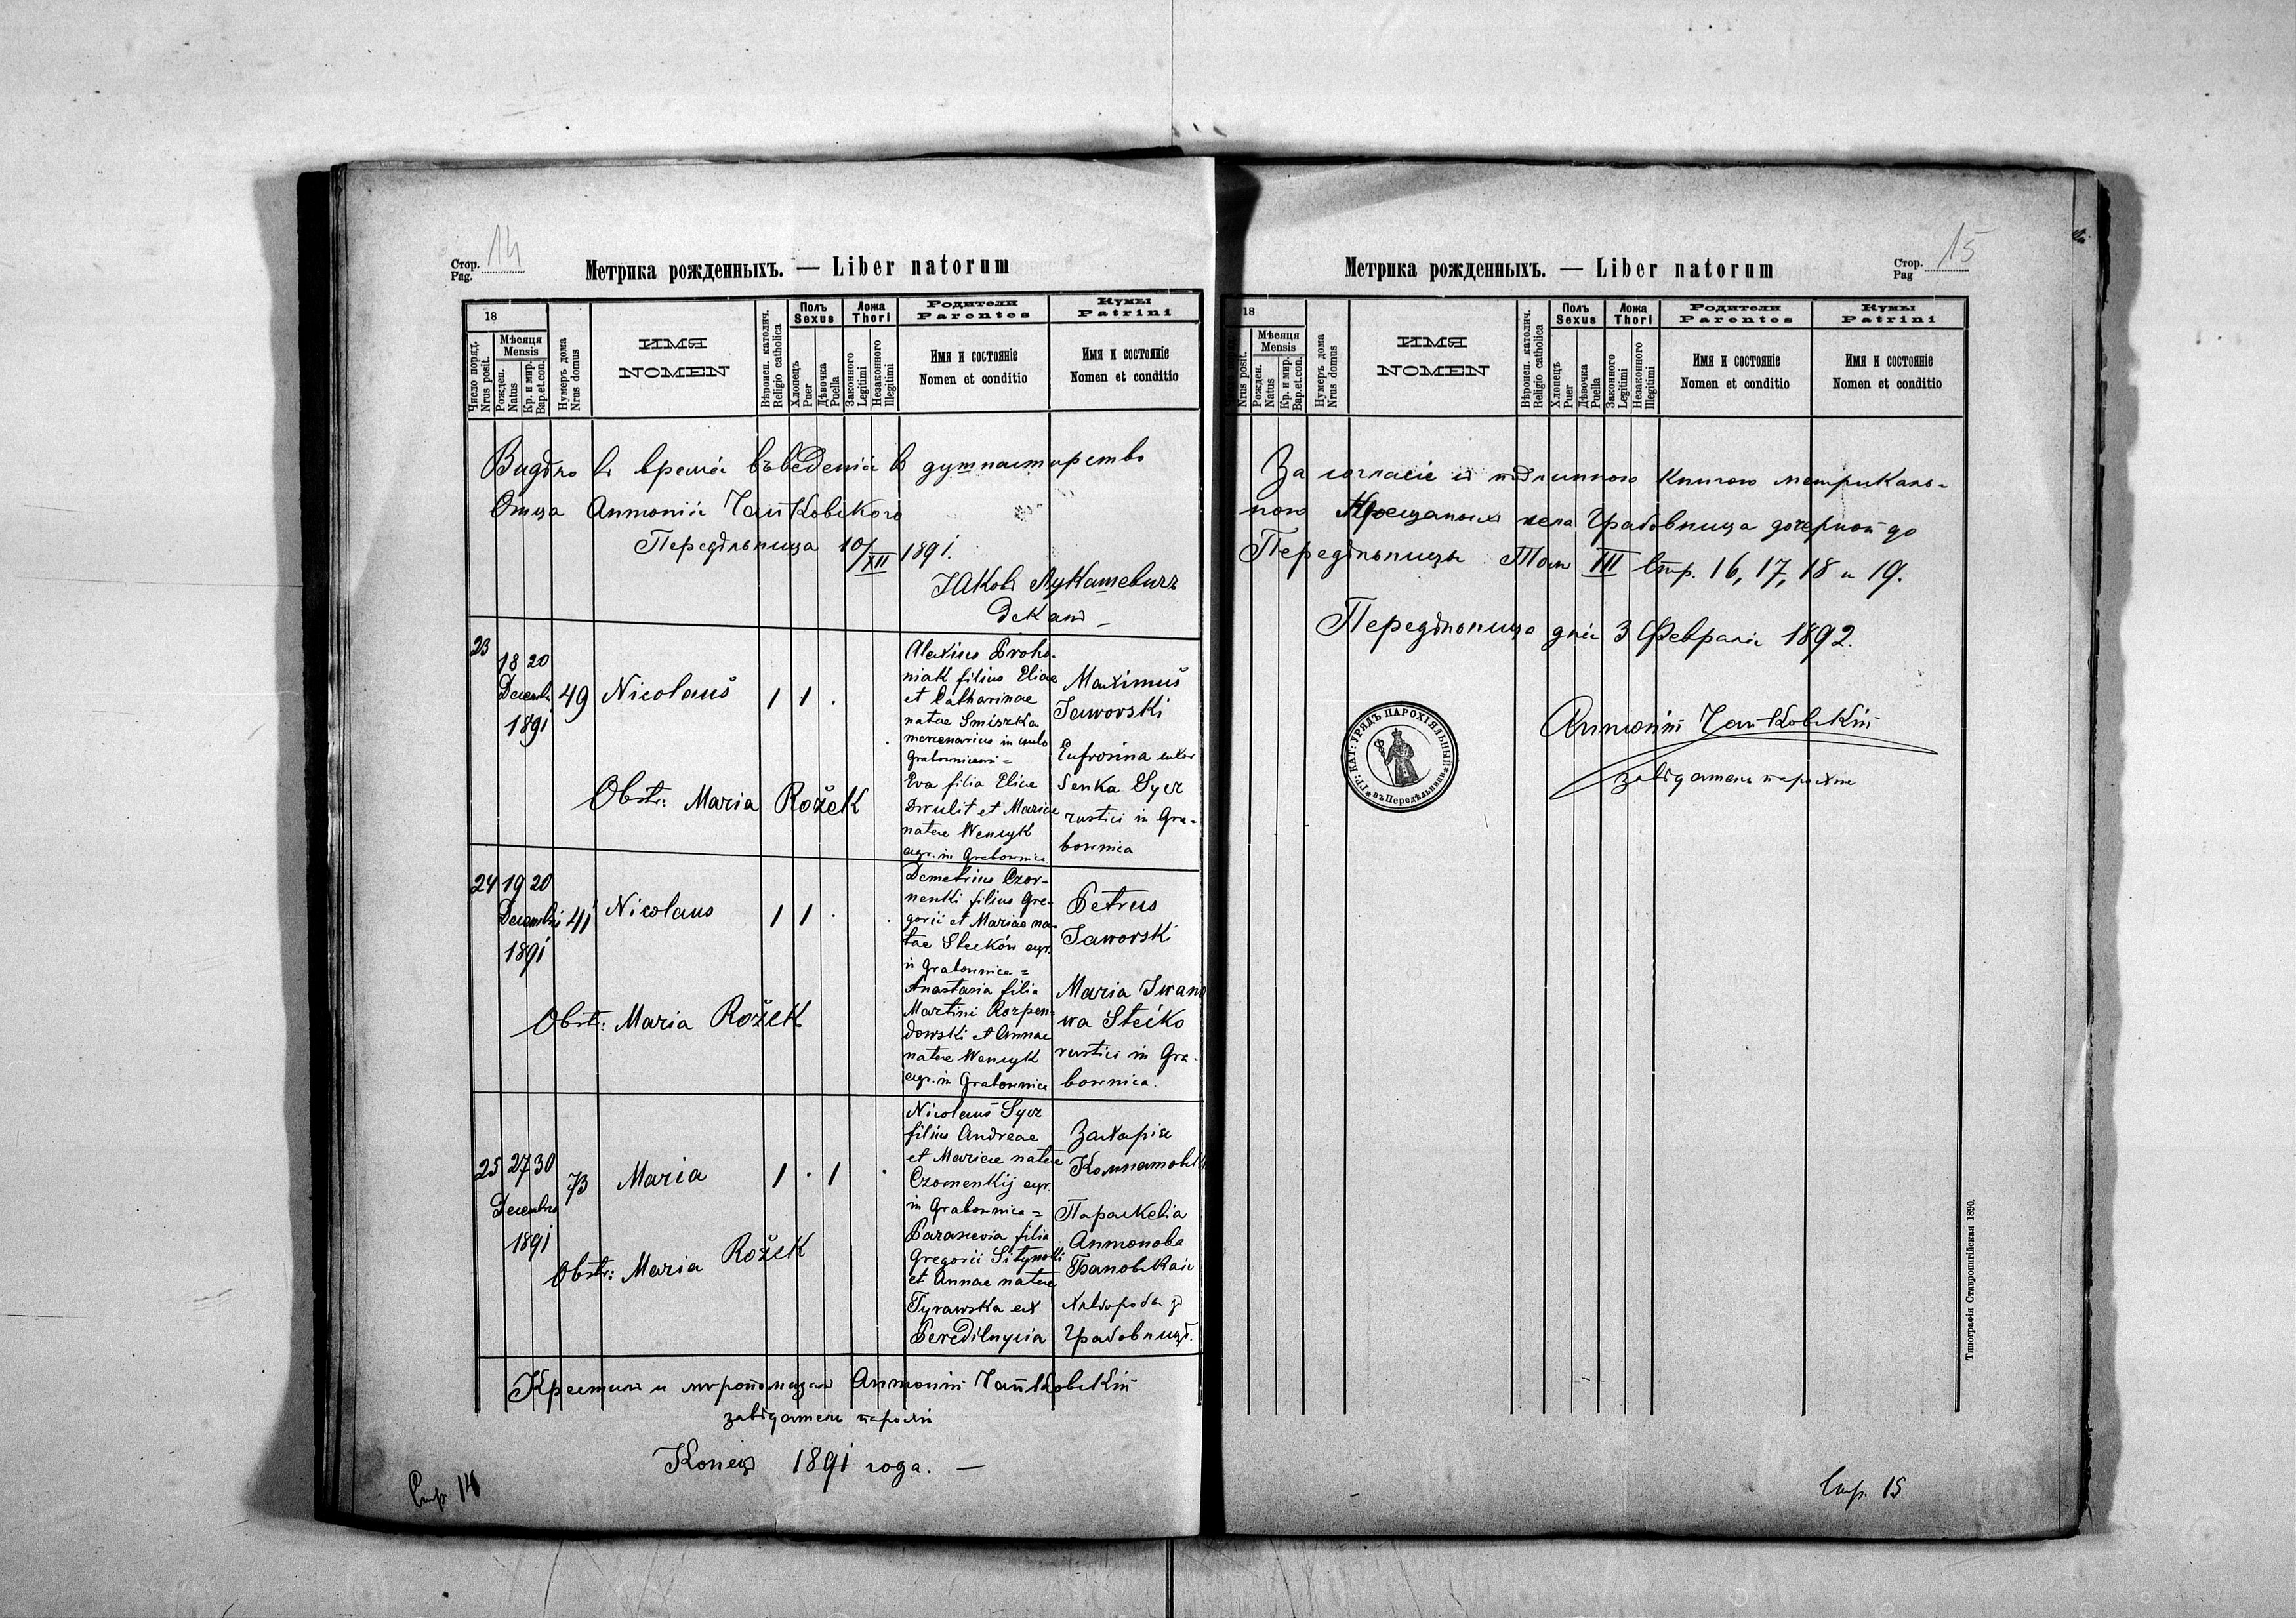 Стор. Pag. 14
Метрика рожденныхъ. — Liber natorum
18
Число поряд. Nrus posit.
Мѣсяця Mensis
Рожден. Natus
Кр. и мир. Bap. et con.
Нумеръ дома Nrus domus
ИМЯ
NOMEN
Вѣроисп. католич. Religio catholica
Полъ Sexus
Хлопецъ Puer
Дѣвочка Puella
Ложа Thori
Законного Legitimi
Незаконного Illegitimi
Родители
Parentes
Имя и состояніе
Nomen et conditio
Кумы
Patrini
Имя и состояніе
Nomen et conditio
Видѣно в время въведенія в душпастирство
Отца Антонія Чайковского
Передѣльница 10/XII 1891.
Яковъ Лукашевичъ
деканъ —
23
18 20
Decembr.
1891
49
Nicolaus
1 1 .
Obstr: Maria Rožek
Alexius Proho-
niak filius Eliae
et Catharinae
natae Smiszka
mercenarius in
Eva filia Eliae
Drulit et Mariae
natae Wencyk
agr. in Grabownica
Maximus
Jaworski
Eufrosina uxor
Senka Sycz
rustici in Gra-
bownica
24 19 20
Decembris
1891
41
Nicolaus
1 1 .
Obstr: Maria Rožek
Demetrius Czor-
nenki filius Gre-
gorii et Mariae na-
tae Stećków agr.
in Grabownica =
Anastasia filia
Martini Korpen-
dowski et Annae
natae Wencyk
agr. in Grabownica
Petrus
Jaworski
Maria Iwano
wa Stećko
rustici in Gra-
bownica.
25 27 30
Decembris
1891
73
Maria
1 . 1
Obstr: Maria Rožek
Nicolaus Sycz
filius Andreae
et Mariae natae
Czornenkij agr.
in Grabownica =
Parascevia filia
Gregorii
et Annae natae
Tyrawska ex
Peredilnycia
Захарія
Параскевія
Антонова
Бановская
хлѣбороби зъ
Грабовницѣ.
Крестилъ и миропомазалъ Антоній Чайковскій
завѣдатель парохіи
Конецъ 1891 года. —
Стр. 14
Стор. Pag 15
Метрика рожденныхъ. — Liber natorum
18
Nrus posit.
Мѣсяця Mensis
Рожден. Natus
Кр. и мир. Bap. et con.
Нумеръ дома Nrus domus
ИМЯ
NOMEN
Вѣроисп. католич. Religio catholica
Полъ Sexus
Хлопецъ Puer
Дѣвочка Puella
Ложа Thori
Законного Legitimi
Незаконного Illegitimi
Родители
Parentes
Имя и состояніе
Nomen et conditio
Кумы
Patrini
Имя и состояніе
Nomen et conditio
За согласіе съ подлинною книгою метрикаль-
ною Крещаныхъ села Грабовница дочерной до
Передѣльницы Томъ III Стр. 16, 17, 18 и 19.
Передѣльница дня 3 Февраля 1892.
Антоній Чайковскій
завѣдатель парохіи
ГР: КАТ: УРЯДЪ ПАРОХІЯЛЬНЫЙ
въ Передѣльници
Типографія Ставропигійская 1890.
Стр. 15